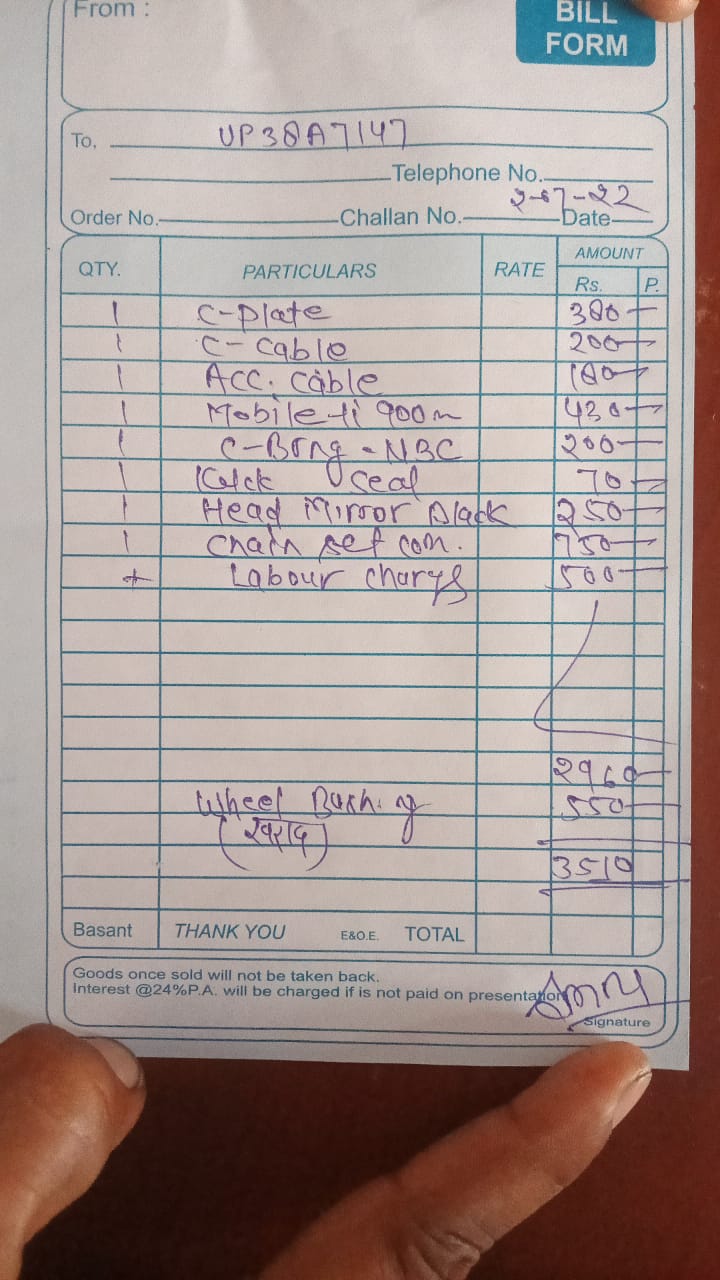 From :
BILL
FORM
To, UP38A7147
Telephone No.
2-07-22
Order No. Challan No. Date
QTY. PARTICULARS RATE AMOUNT
Rs. P.
1 C-Plate 380
1 C-Cable 200
1 Acc. Cable 180
1 Mobile 900m 430
1 C-Brng - NBC 200
1 Kick Seal 70
1 Head Mirror Black 250
1 Chain set com. 750
+ Labour charge 500
2960
Wheel 550
3510
Basant THANK YOU E&O.E. TOTAL
Goods once sold will not be taken back.
Interest @24%P.A. will be charged if is not paid on presentation
Signature